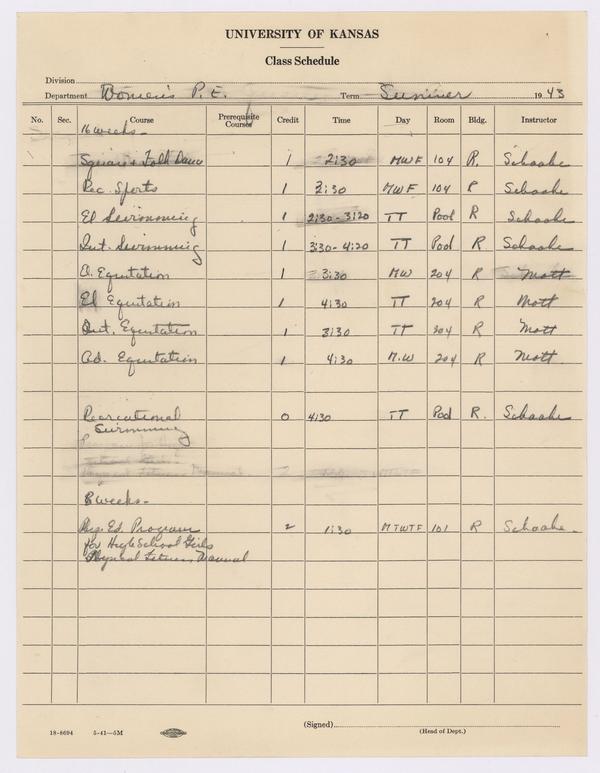 UNIVERSITY OF KANSAS
Class Schedule
Division
Department Women's P.E. Term Summer 1943
No. Sec. Course Prerequisite Courses Credit Time Day Room Bldg. Instructor
16 weeks-
Square & Folk Dance 1 2:30 MWF 104 R. Schaake
Rec. Sports 1 3:30 MWF 104 R Schaake
El Swimming 1 2:30-3:20 TT Pool R Schaake
Int. Swimming 1 3:30-4:20 TT Pool R Schaake
O. Equitation 1 3:30 MW 204 R Mott
El Equitation 1 4:30 TT 204 R Mott
Int. Equitation 1 3:30 TT 204 R Mott
Ad. Equitation 1 4:30 M.W 204 R Mott
Recreational 0 4:30 TT Pool R. Schaake
Swimming
8 weeks-
Phys. Ed. Program 2 1:30 MTWTF 101 R Schaake.
for High School Girls
Physical Fitness Manual
(Signed)
18-8694 5-41-5M (Head of Dept.)